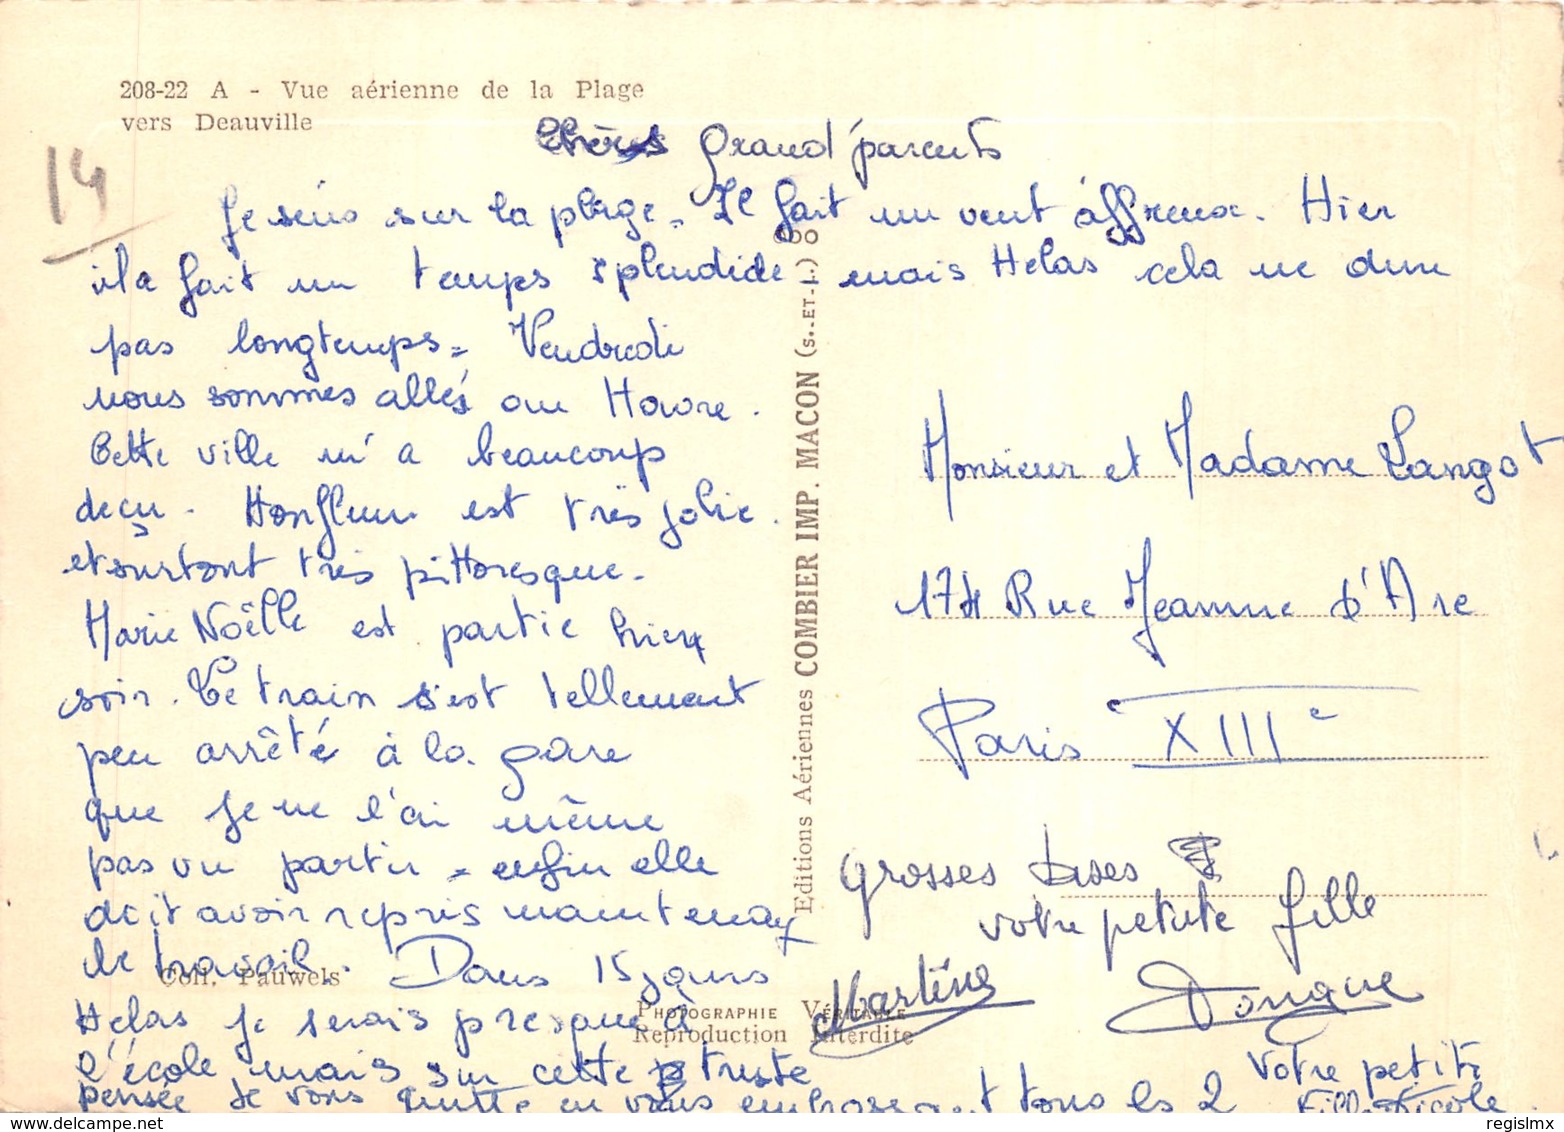 208-22 A - Vue aérienne de la Plage
vers Deauville
14
Chers Grand'parents
Je suis sur la plage. Il fait un vent affreux. Hier
il a fait un temps splendide mais Helas cela ne dure
pas longtemps. Vendredi
nous sommes allés au Havre.
Cette ville m'a beaucoup
deçu. Honfleur est très jolie.
et surtout très pittoresque.
Marie Noëlle est partie hier
soir. Le train s'est tellement
peu arrêté à la gare
que je ne l'ai même
pas vu partir - enfin elle
doit avoir repris maintenant
le travail. Dans 15 jours
Helas je serais presque à
l'école mais sur cette triste
pensée je vous quitte en vous embrassant tous les 2
Monsieur et Madame Langot
174 Rue Jeanne d'Arc
Paris XIIIe
Grosses bises
votre petite fille
Martine
votre petite
fille Nicole.
Editions Aériennes COMBIER IMP. MACON (S.-ET-L.)
Coll. Pauwels
PHOTOGRAPHIE VÉRITABLE
Reproduction Interdite
www.delcampe.net
regislmx